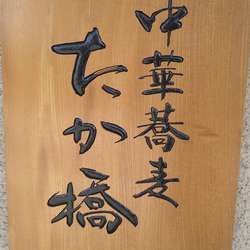 中華蕎麦
たか橋